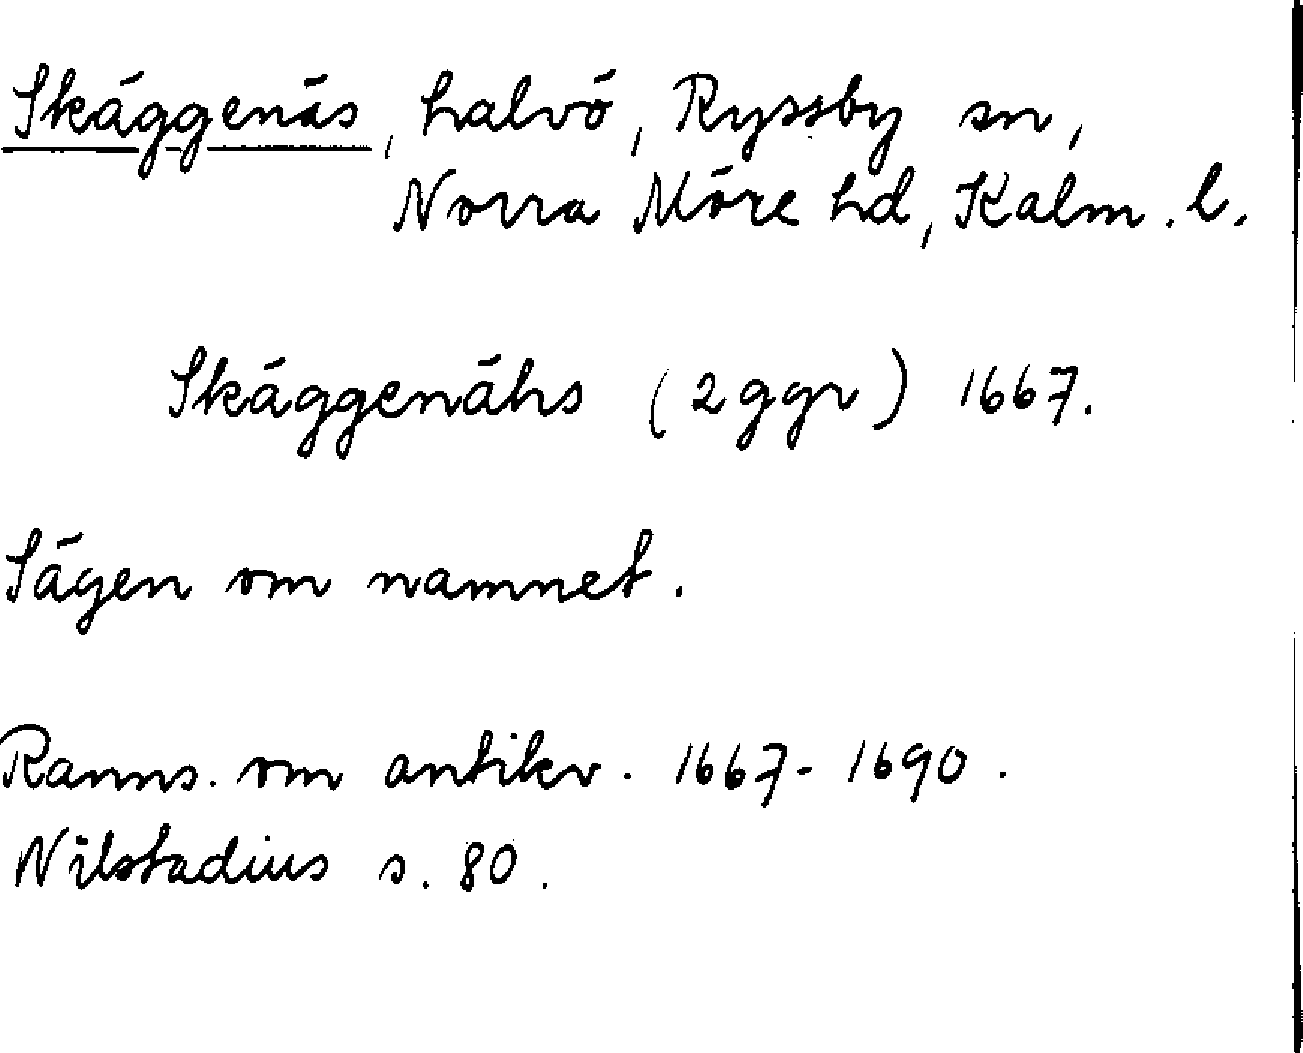 Skäggenäs, halvö, Ryssby sn,
Norra Möre hd, Kalm. l.
Skäggenähs (2 ggr) 1667.
Sägen om namnet.
Ranns. om antikv. 1667-1690.
Nilstadius s. 80.